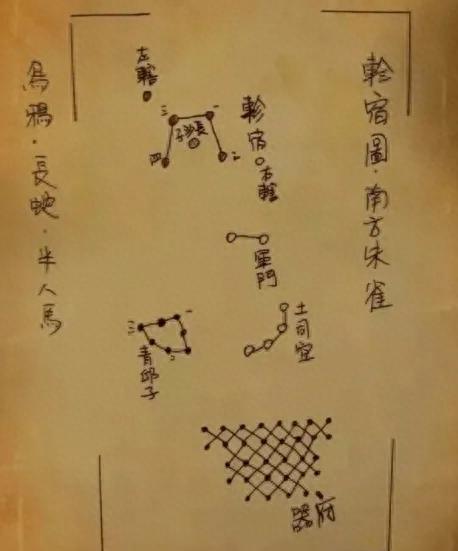 軫宿圖·南方朱雀
烏鴉·長蛇·半人馬
左轄
三
一
長沙子
四
二
軫宿
右轄
軍門
土司空
一
三
二
青邱子
器府